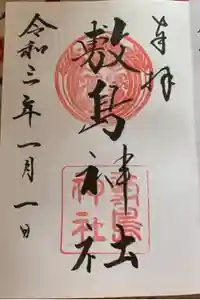 奉拝
敷島神社
敷島神社
令和三年一月一日